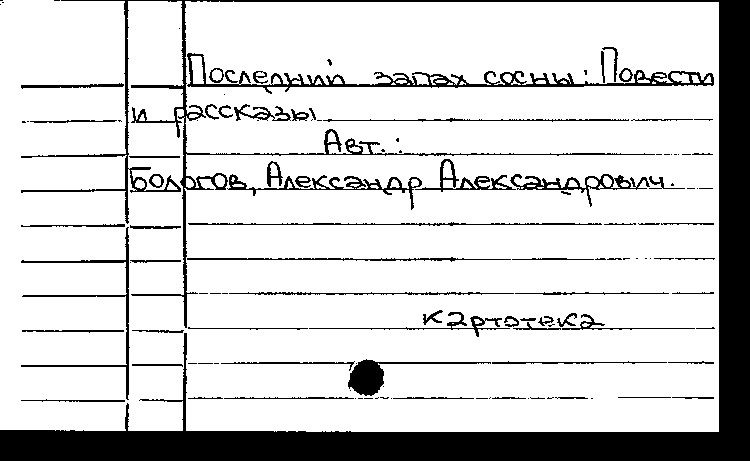 Последний запах сосны: Повести
и рассказы
Авт.:
Бологов, Александр Александрович.
картотека